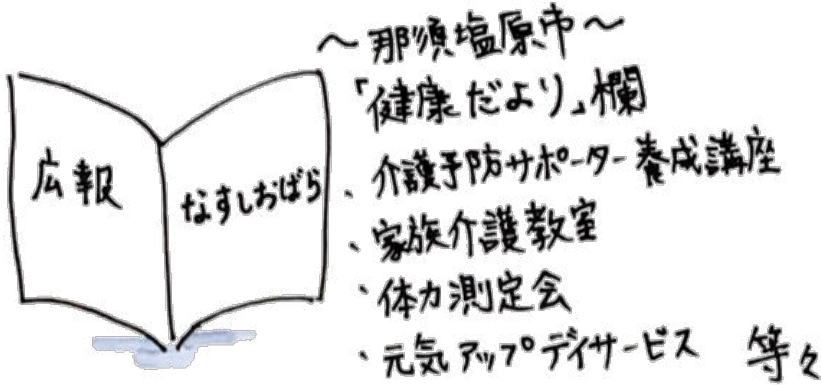 広報
なすしおばら
～那須塩原市～
「健康だより」欄
、介護予防サポーター養成講座
、家族介護教室
・体力測定会
・元気アップデイサービス 等々